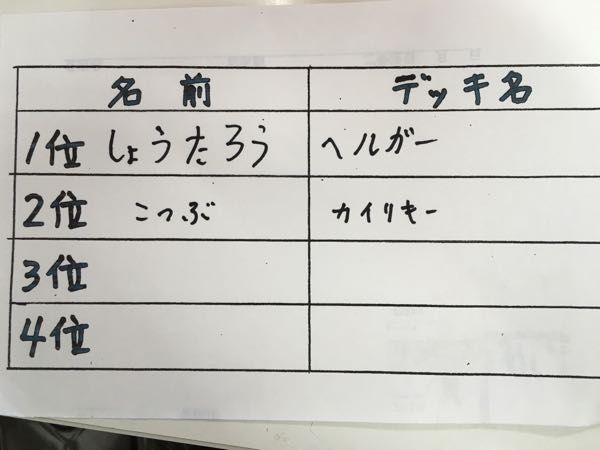 名前 デッキ名
1位 しょうたろう ヘルガー
2位 こつぶ カイリキー
3位
4位